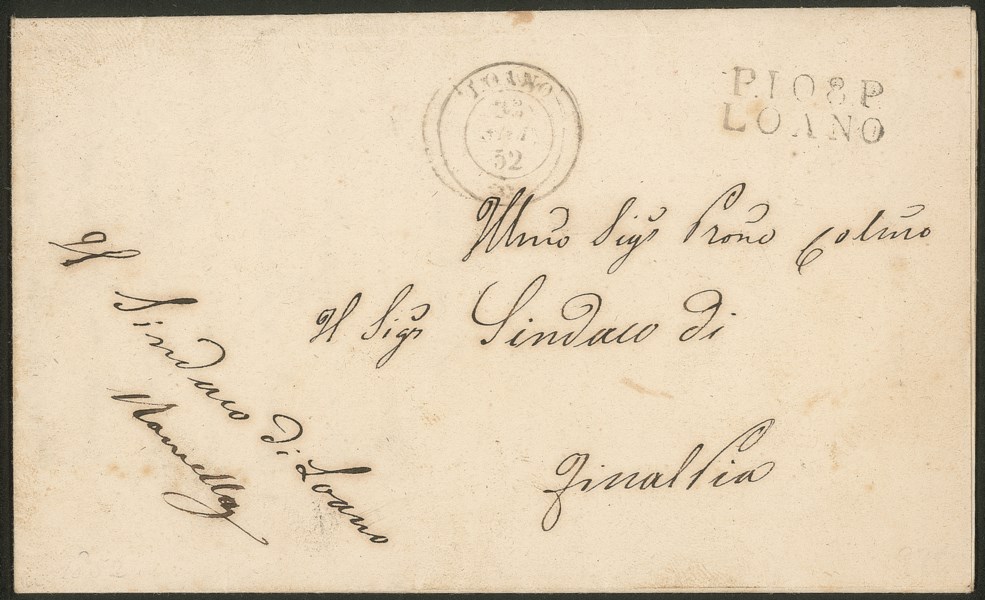 LOANO
52
P.108.P.
LOANO
Illmo Sigr Prone Colmo
Il Sigr Sindaco di
Finalpia
Il
Sindaco di Loano